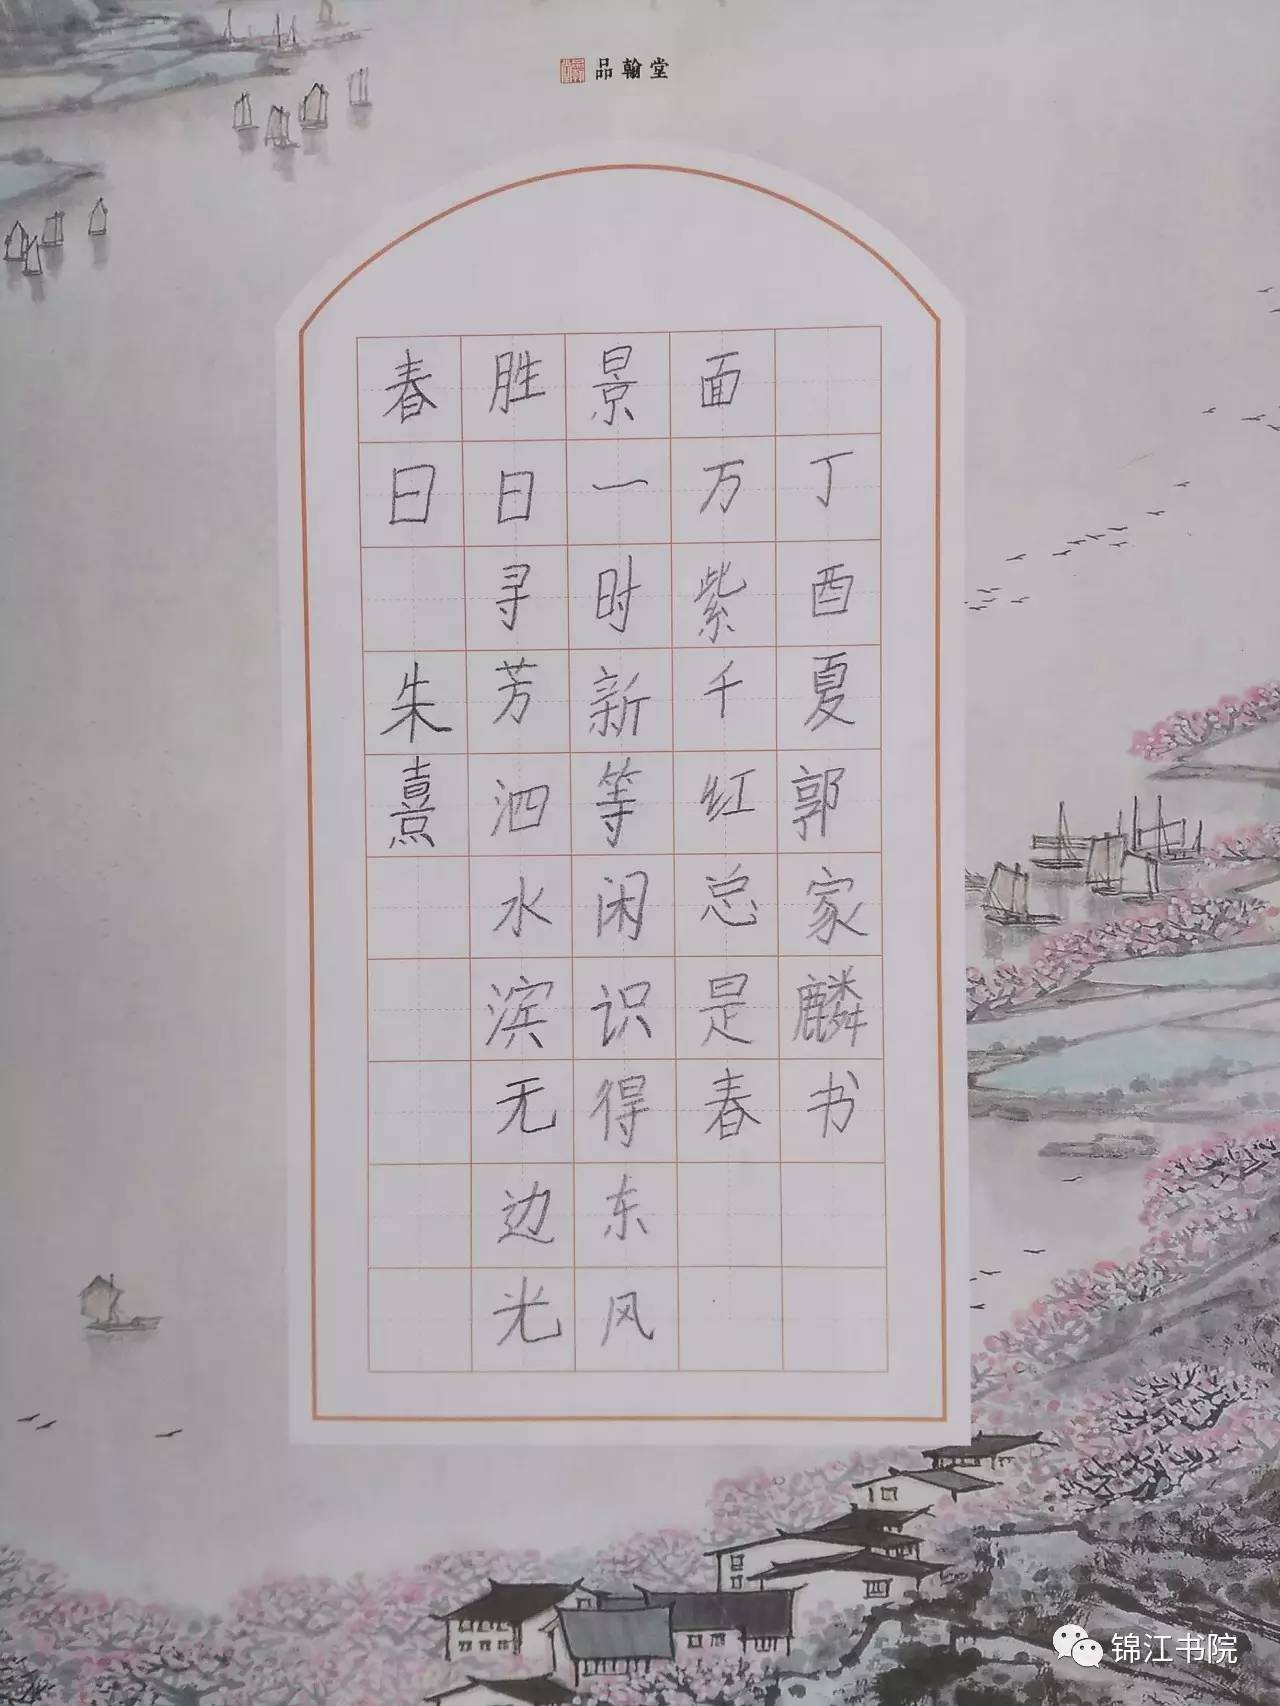 品翰堂
春日 朱熹
胜日寻芳泗水滨无边光
景一时新等闲识得东风
面万紫千红总是春
丁酉夏郭家麟书
锦江书院